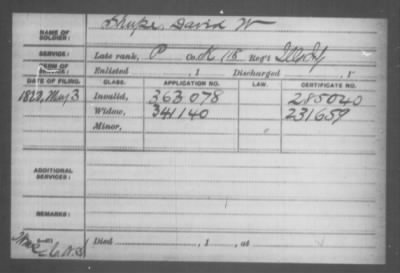 NAME OF SOLDIER: Shupe, David W
SERVICE: Late rank, P Co. K 118 Reg't Ills Inf
TERM OF SERVICE: Enlisted , 1 Discharged , 1
DATE OF FILING. CLASS. APPLICATION NO. LAW. CERTIFICATE NO.
May 3 Invalid, 363.078 285040
Widow, 341140 231659
Minor,
ADDITIONAL SERVICES:
REMARKS:
Died , 1 , at